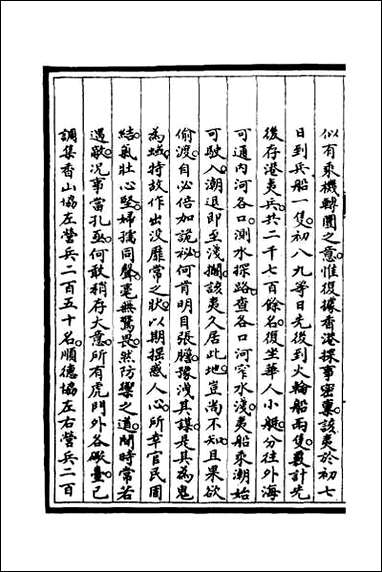 似有乘機轉圜之意惟復據香港探事密稟該夷於初七
日到兵船一隻初八九等日先後到火輪船兩隻數計先
後存港夷兵共二千七百餘名復坐華人小艇分往外海
可通內河各口測水探路查各口河窄水淺夷船乘潮始
可駛入潮退即至淺擱該夷久居此地豈尚不知且果欲
偷渡自必倍加詭秘何肯明目張膽豫洩其謀是其為鬼
為蜮特故作出沒靡常之狀以期搖惑人心所幸官民固
結氣壯心堅婦孺同聲毫無驚畏然防禦之道閒時常若
遇敵況事當孔亟何敢稍存大意所有虎門外各礮臺已
調集香山協左營兵二百五十名順德協左右營兵二百